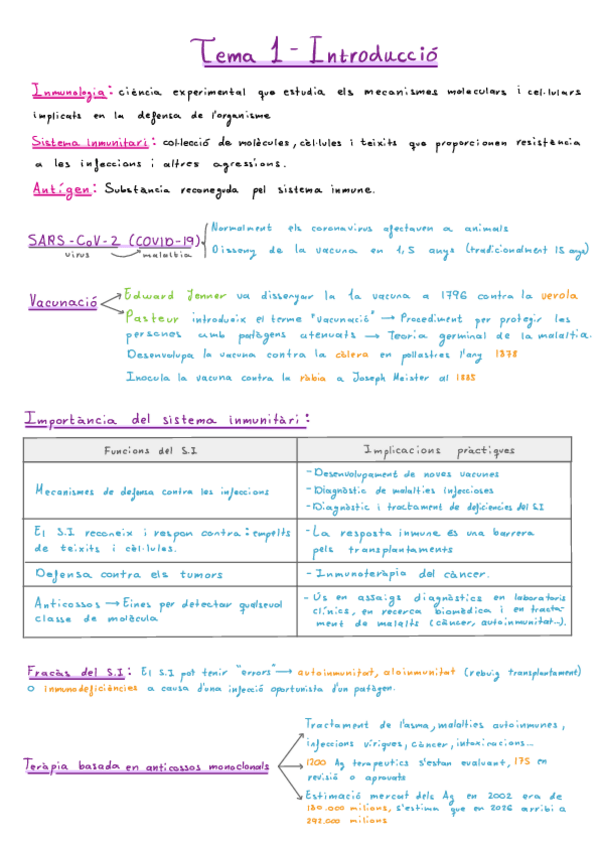 Tema 1 - Introducció
Inmunologia: ciència experimental que estudia els mecanismes moleculars i cel·lulars
implicats en la defensa de l'organisme
Sistema Inmunitari: col·lecció de molècules, cèl·lules i teixits que proporcionen resistència
a les infeccions i altres agressions.
Antígen: Substància reconeguda pel sistema inmune.
SARS-CoV-2 (COVID-19)
virus malaltia
Normalment els coronavirus afectaven a animals
Disseny de la vacuna en 1,5 anys (tradicionalment 15 anys)
Vacunació
Edward Jenner va dissenyar la 1a vacuna a 1796 contra la verola
Pasteur introdueix el terme "vacunació" → Procediment per protegir les
persones amb patògens atenuats → Teoria germinal de la malaltia.
Desenvolupa la vacuna contra la còlera en pollastres l'any 1878
Inocula la vacuna contra la ràbia a Joseph Meister al 1885
Importància del sistema inmunitàri:
Funcions del S.I
Implicacions pràctiques
Mecanismes de defensa contra les infeccions
- Desenvolupament de noves vacunes
- Diagnòstic de malalties infeccioses
- Diagnòstic i tractament de deficiències del S.I
El S.I reconeix i respon contra: empelts
de teixits i cèl·lules.
- La resposta inmune és una barrera
pels transplantaments
Defensa contra els tumors
- Inmunoteràpia del càncer.
Anticossos → Eines per detectar qualsevol
classe de molècula
- Ús en assaigs diagnòstics en laboratoris
clínics, en recerca biomèdica i en tracta-
ment de malalts (càncer, autoinmunitat...).
Fracàs del S.I: El S.I pot tenir "errors" → autoinmunitat, aloinmunitat (rebuig transplantament)
o inmunodeficiències a causa d'una infecció oportunista d'un patògen.
Teràpia basada en anticossos monoclonals
Tractament de l'asma, malalties autoinmunes,
infeccions víriques, càncer, intoxicacions...
1200 Ag terapeutics s'estan evaluant, 175 en
revisió o aprovats
Estimació mercat dels Ag en 2002 era de
130.000 milions, s'estima que en 2026 arribi a
292.000 milions